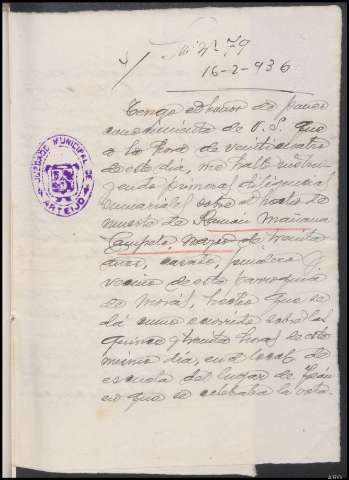 79
16-2-936
Tengo el honor de poner en
conocimiento de V. S. que
a la hora de veinticuatro
de este día, me hallo instru-
yendo primeras diligencias
sumariales sobre el hecho de
muerte de Ramón Mañana
de treinta
años, casado, jornalero y
vecino de esta parroquia
de Morás, hecho que se
dá como ocurrido sobre las
quince y treinta horas de este
mismo día, en el local de
escuela del lugar de
en que se celebraba la vota-
JUZGADO MUNICIPAL DE
ARTEIJO